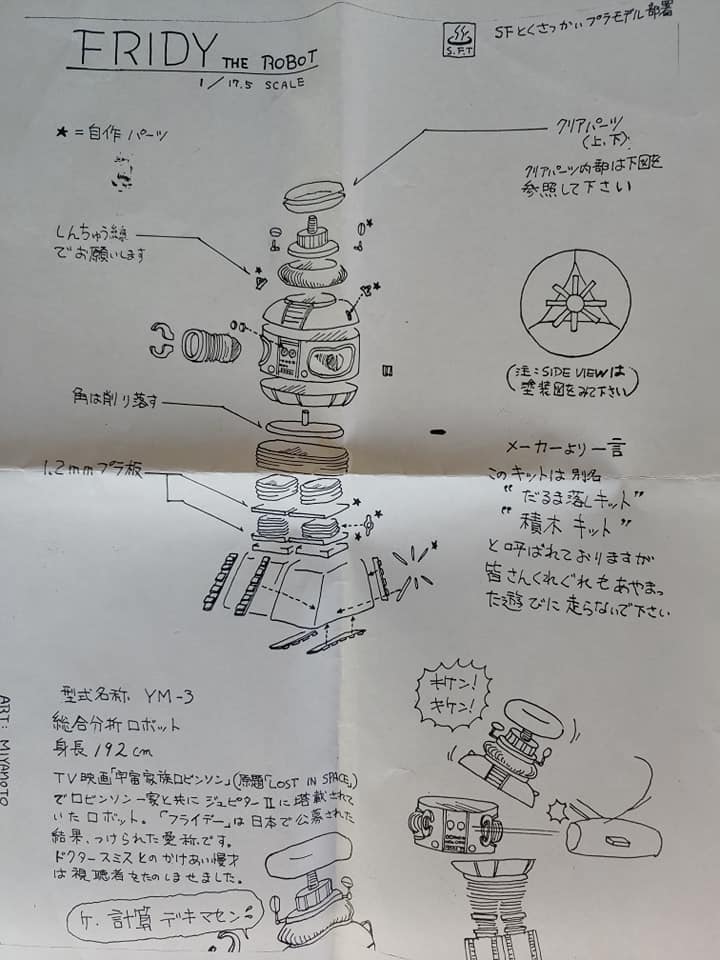 FRIDY THE ROBOT
1/17.5 SCALE
S.F.T
SFとくさつかいプラモデル部署
★=自作パーツ
クリアパーツ
(上、下)
クリアパーツ内部は下図を
参照して下さい
しんちゅう線
でお願いします
(注:SIDE VIEWは
塗装図をみて下さい)
角は削り落す
1.2mmプラ板
メーカーより一言
このキットは別名
"だるま落しキット"
"積木キット"
と呼ばれておりますが
皆さんくれぐれもあやまっ
た遊びに走らないで下さい
型式名称 YM-3
総合分析ロボット
身長192cm
TV映画「宇宙家族ロビンソン」(原題「LOST IN SPACE」)
でロビンソン一家と共にジュピターⅡに塔載されて
いたロボット。「フライデー」は日本で公募された
結果、つけられた愛称です。
ドクタースミスとのかけあい漫才
は視聴者をたのしませました。
ケ、計算デキマセン
キケン!
キケン!
ART: MIYAMOTO